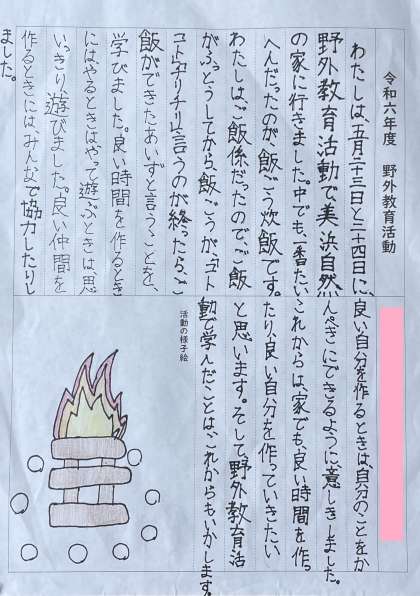 令和六年度　野外教育活動
わたしは、五月二十三日と二十四日に、
野外教育活動で美浜自然
の家に行きました。中でも、一番たい
へんだったのが、飯ごう炊飯です。
わたしはご飯係だったので、ご飯
がふっとうしてから、飯ごうが、ゴト
ゴト、チリチリ言うのが終ったら、ご
飯ができたあいずと言うことを、
学びました。良い時間を作るとき
には、やるときはやって遊ぶときは、思
いっきり遊びました。良い仲間を
作るときには、みんなで協力したりし
ました。
良い自分を作るときは、自分のことをか
んぺきにできるように、意しきしました。
これからは、家でも、良い時間を作っ
たり、良い自分を作っていきたい
と思います。そして、野外教育活
動で学んだことは、これからもいかします。
活動の様子絵